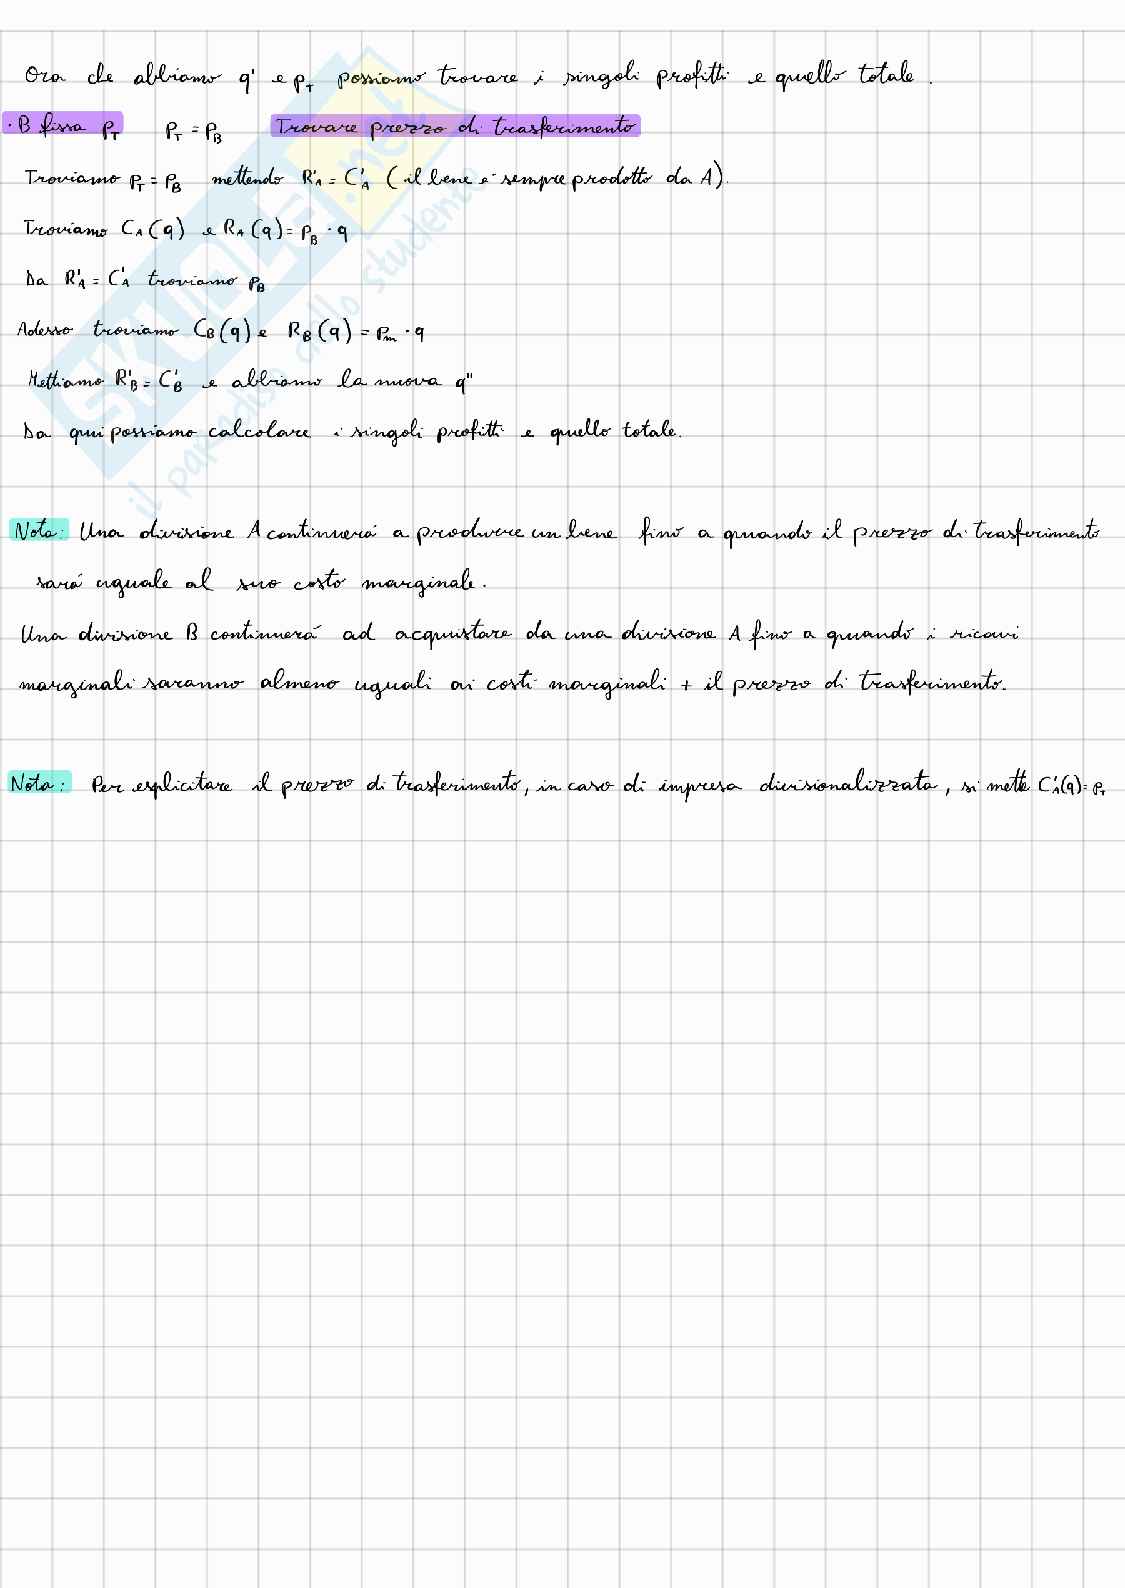 Ora che abbiamo q' e p_T possiamo trovare i singoli profitti e quello totale.
· B fissa p_T p_T = p_B Trovare prezzo di trasferimento
Troviamo p_T = p_B mettendo R'_A = C'_A (il bene è sempre prodotto da A).
Troviamo C_A(q) e R_A(q) = p_B · q
Da R'_A = C'_A troviamo p_B
Adesso troviamo C_B(q) e R_B(q) = p_m · q
Mettiamo R'_B = C'_B e abbiamo la nuova q"
Da qui possiamo calcolare i singoli profitti e quello totale.
Nota: Una divisione A continuerà a produrre un bene fino a quando il prezzo di trasferimento
sarà uguale al suo costo marginale.
Una divisione B continuerà ad acquistare da una divisione A fino a quando i ricavi
marginali saranno almeno uguali ai costi marginali + il prezzo di trasferimento.
Nota: Per esplicitare il prezzo di trasferimento, in caso di impresa divisionalizzata, si mette C'_A(q) = p_T
SKUOLA.net
il paradiso dello studente